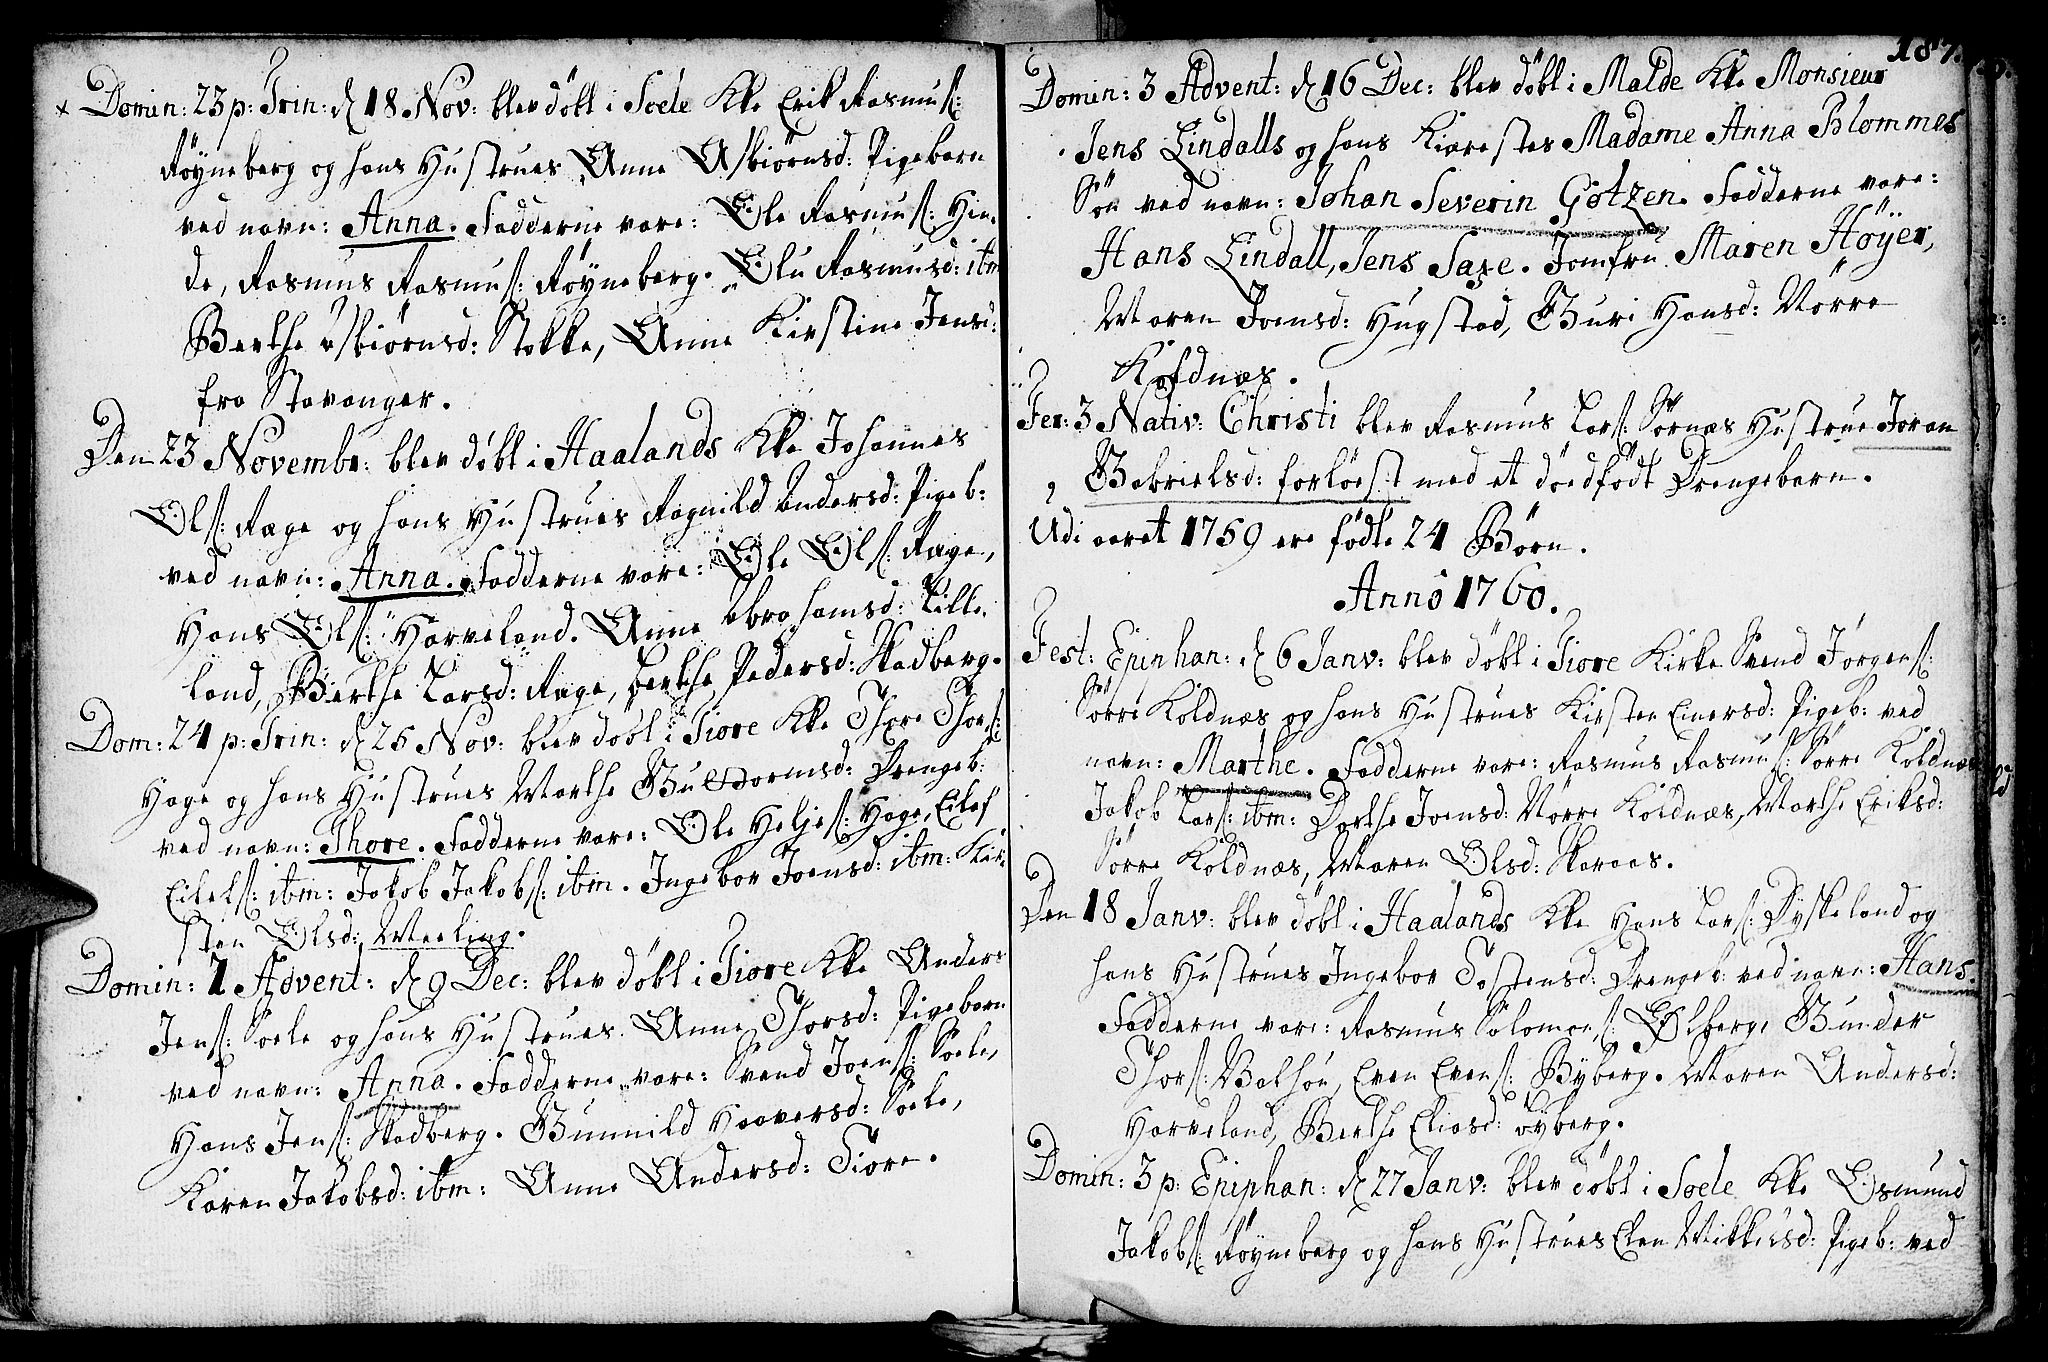 Domin: 23 p: Trin: d 18 Nov: blev döbt i Soele Kke Erik Rasmuss:
Röyneberg og hans Hustrues Anne Asbiörnsd: Pigebarn
ved navn: Anna. Fadderne vare: Ole Rasmuss: Hin-
de, Rasmus Rasmuss: Röyneberg. Olu Rasmusd: ibm
Berthe Asbiörnsd: Stokke, Anne Kirstine Jensd:
fra Stavanger.
Den 23 Novembr: blev döbt i Haalands Kke Johannes
Ols: Ræge og hans Hustrues Ragnild Andersd: Pigeb:
ved navn: Anna. Fadderne vare: Ole Ols: Ræge,
Hans Ols: Harveland. Anne Abrahamsd: Lille-
land, Berthe Larsd: Ræge, Berthe Pedersd: Skadberg.
Dom: 24 p: Trin: d 25 Nov: blev döbt i Tiore Kke Thore Thors:
Hage og hans Hustrues Marthe Guttormsd: Drengeb:
ved navn: Thore. Fadderne vare: Ole Heljes: Hage, Eilef
Eilefs: ibm: Jakob Jakobs: ibm. Ingebor Joensd: ibm: Kir-
sten Olsd: Meeling.
Domin: 1 Advent: d 9 Dec: blev döbt i Tiore Kke Anders
Jens: Soele og hans Hustrues Anne Thorsd: Pigebarn
ved navn: Anna. Fadderne vare: Svend Joens: Soele,
Hans Jens: Skadberg. Gunnild Haaversd: Soele,
Karen Jakobsd: ibm: Anne Andersd: Tiore.
187.
Domin: 3 Advent: d 16 Dec: blev döbt i Malde Kke Monsieur
Jens Lindalls og hans Kiærestes Madame Anna Blommes
Sön ved navn: Johan Severin Götzen. Fadderne vare:
Hans Lindall, Jens Saxe. Jomfru Maren Höÿer,
Maren Joensd: Hugstad, Guri Hansd: Nörre
Koldnæs.
Fer: 3 Nativ: Christi blev Rasmus Lars: Sörnæs Hustrue Joran
Gabrielsd: forlöest med et dödfödt Drengebarn.
Udi aaret 1759 ere födte 24 Börn.
Anno 1760.
Fest: Epiphan: d 6 Janv: blev döbt i Tiore Kirke Svend Jörgens:
Sörre Koldnæs og hans Hustrues Kirsten Einersd: Pigeb: ved
navn: Marthe. Fadderne vare: Rasmus Rasmus: Sörre Koldnæs
Jakob Lars: ibm: Dorthe Joensd: Nörre Koldnæs, Marthe Eriksd:
Sörre Koldnæs, Maren Olsd: Skaraas.
Den 18 Janv: blev döbt i Haalands Kke Hans Lars: Dyskeland og
hans Hustrues Ingebor Tostensd: Drengeb: ved navn: Hans.
Fadderne vare: Rasmus Salomons: Ölberg, Gunder
Thors: Bötheu, Even Evens: Byberg. Maren Andersd:
Harveland, Berthe Eliasd: Byberg.
Domin: 3 p: Epiphan: d 27 Janv: blev döbt i Soele Kke Osmund
Jakobs: Röyneberg og hans Hustrues Elen Mikkelsd: Pigeb: ved